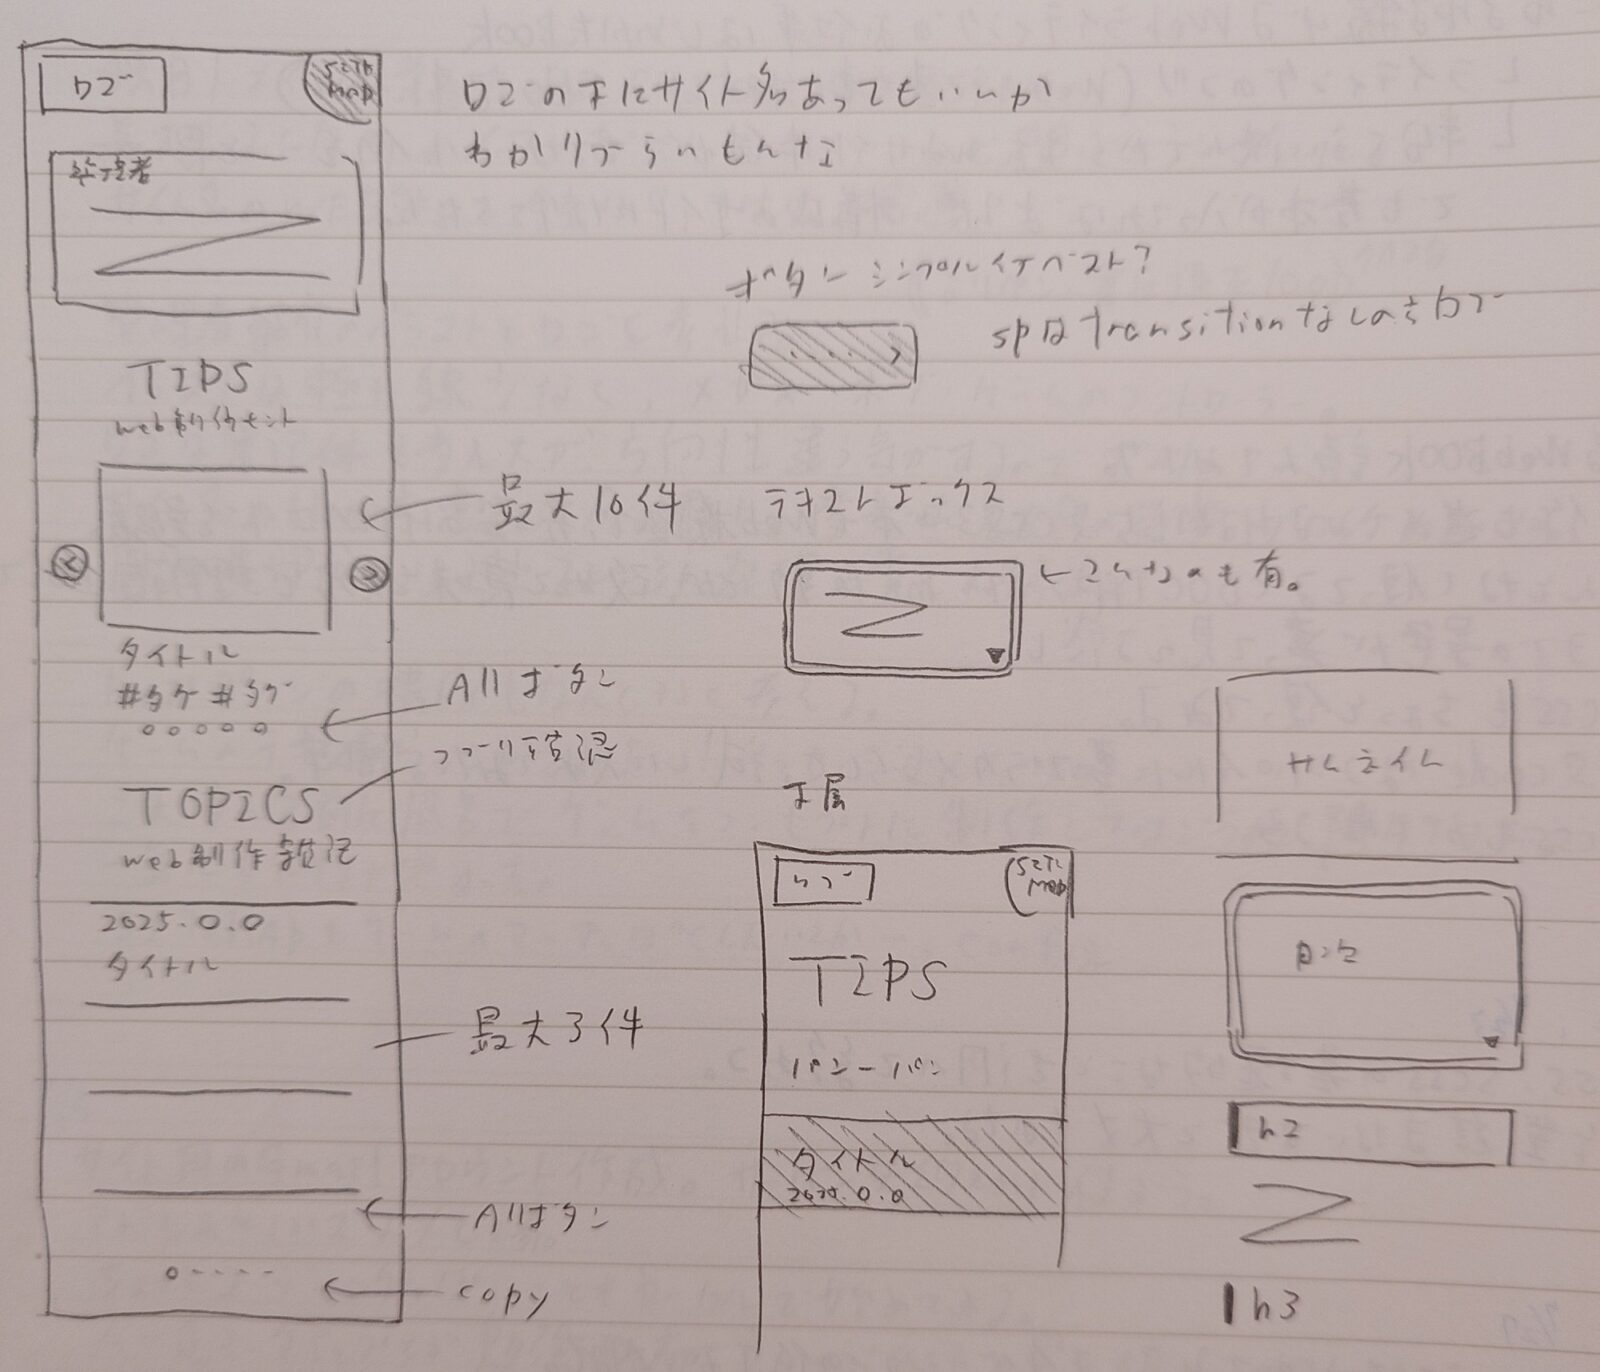 ロゴ
SITE
MAP
ロゴの下にサイト名あってもいいか
わかりづらいもんな
ボタン シンプルイズベスト?
spはtransitionなし
TIPS
web制作ヒント
最大10件
タイトル
#タグ #タグ
Allボタン
TOPICS
web制作雑記
2025.0.0
タイトル
最大3件
Allボタン
copy
テキストボックス
こんなのも有。
下層
ロゴ
SITE
MAP
TIPS
パン-パン
タイトル
2025.0.0
サムネイル
目次
h2
h3